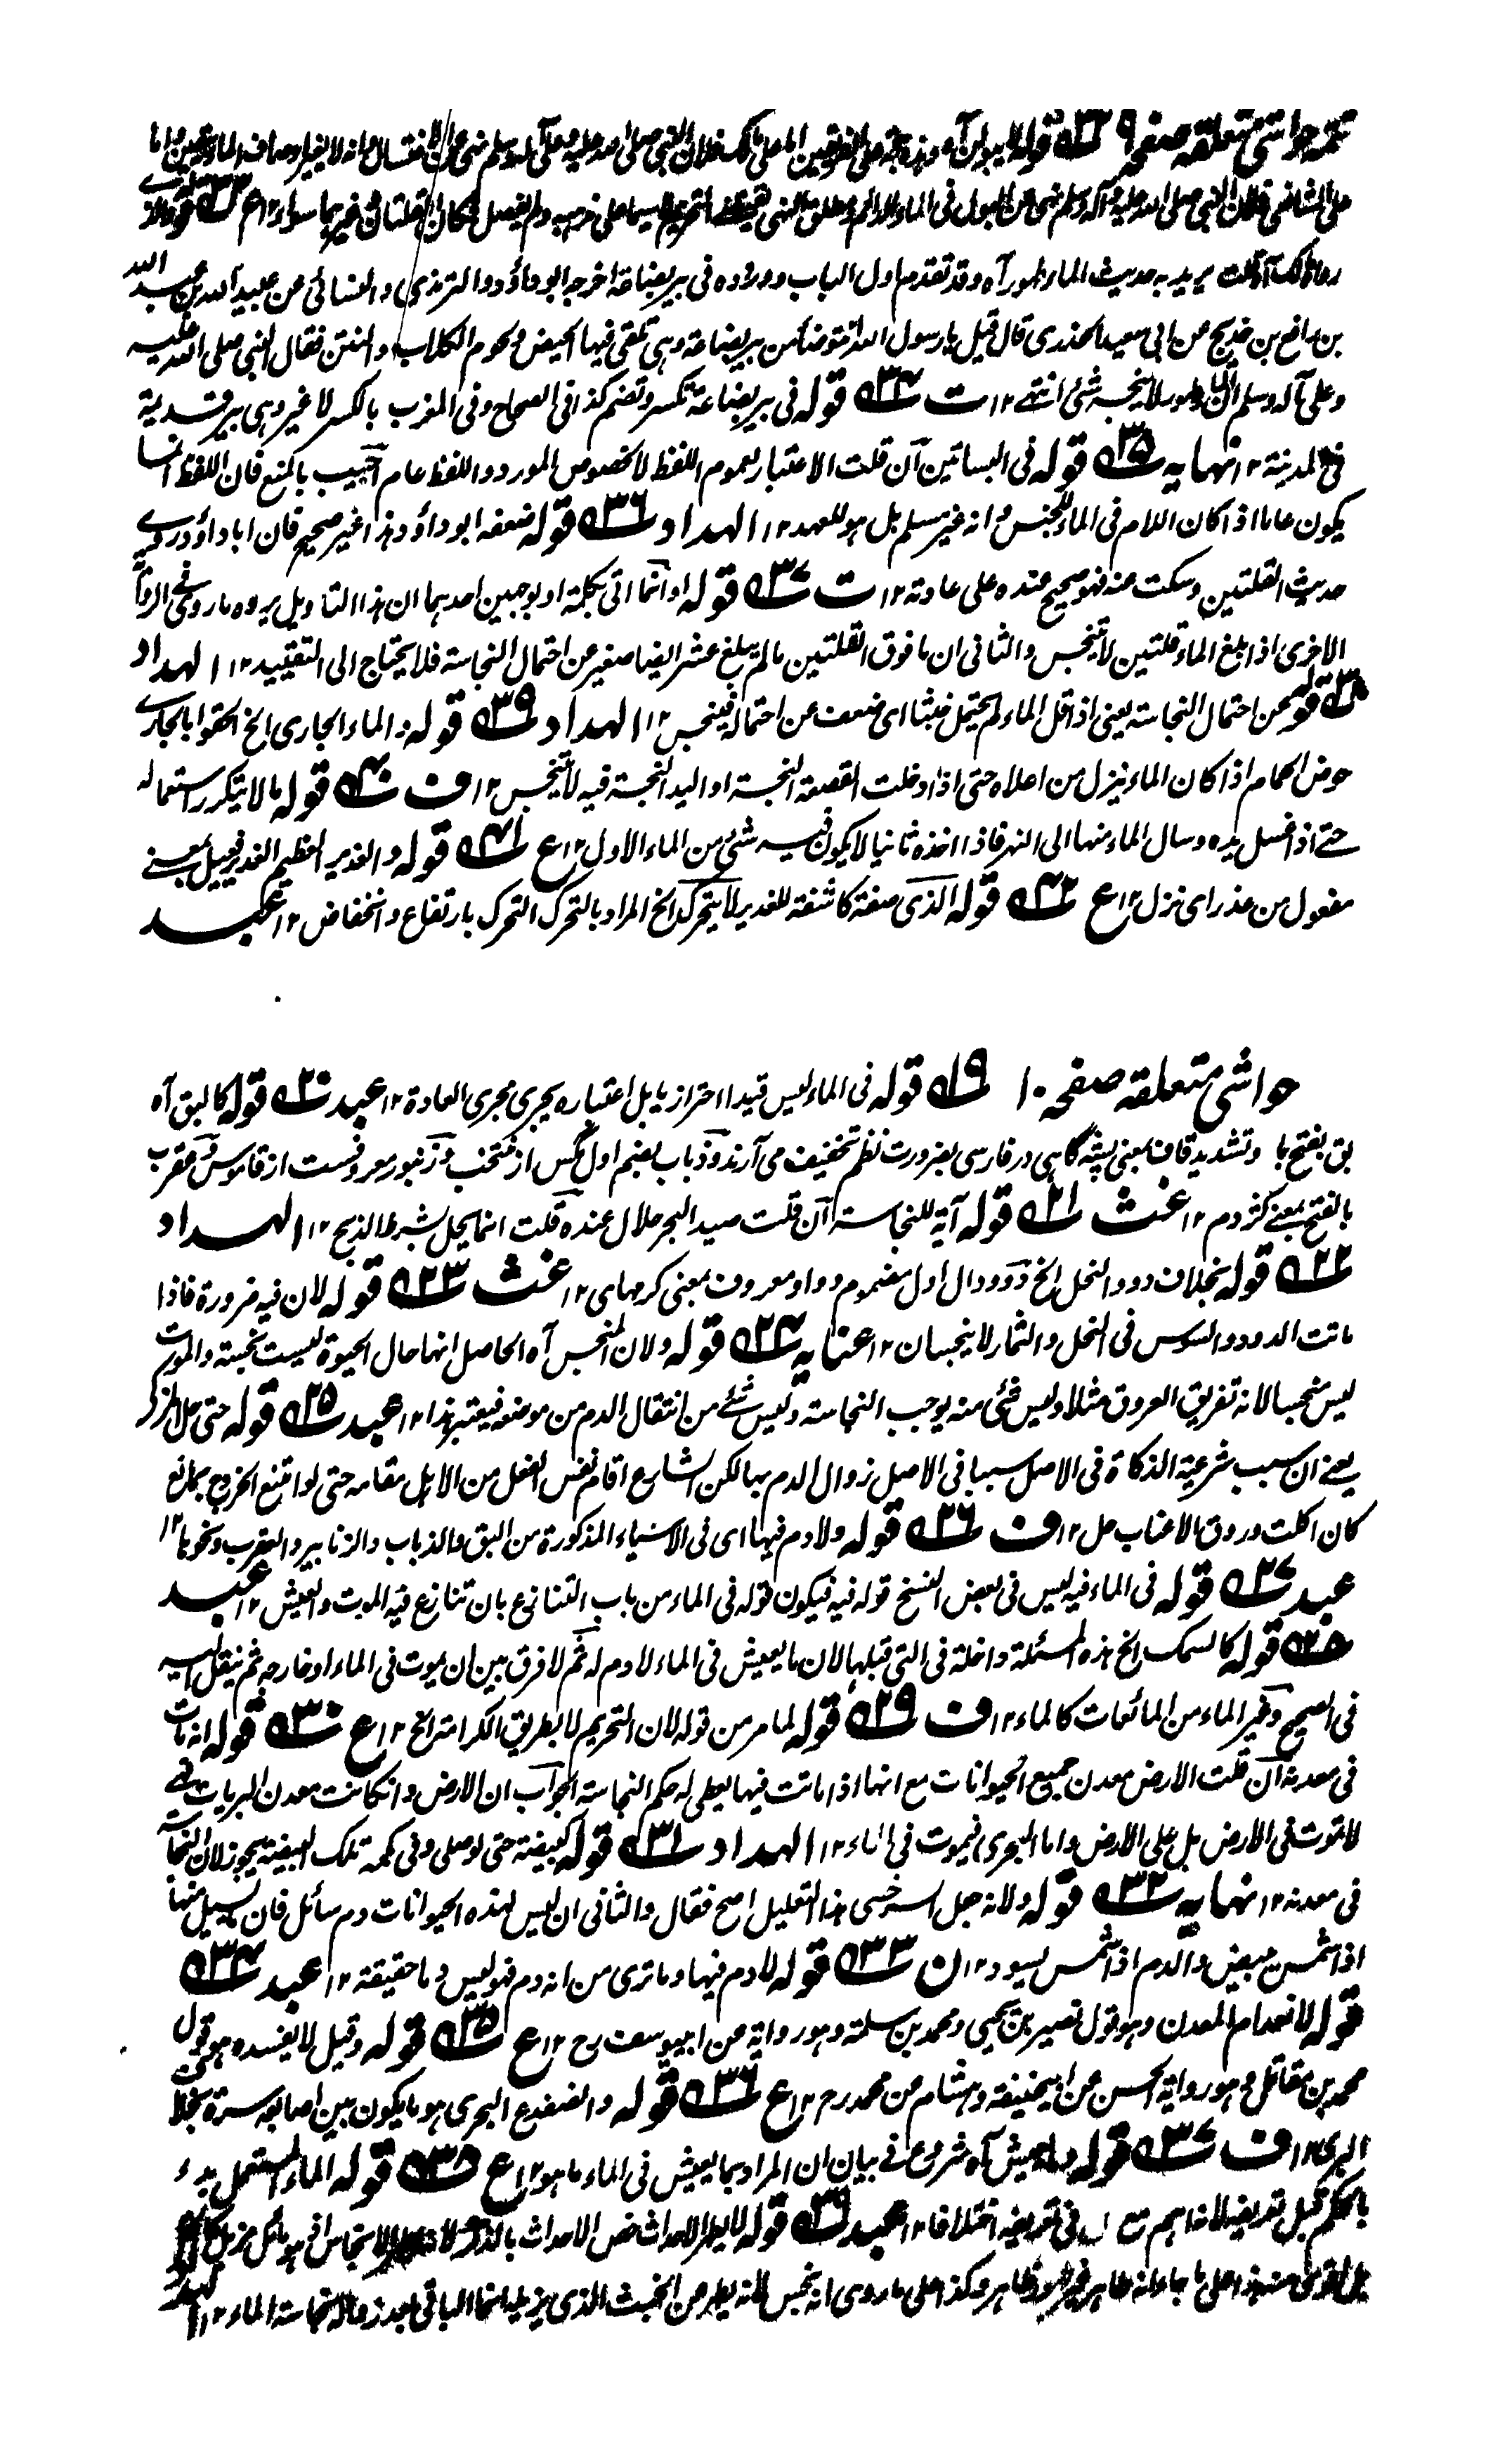 تتمه حواشی متعلقه صفحه ۹ ۳۲ قوله لا یبولن آه وهذا حجة علی الفریقین اما علی مالک فلان النبی صلی الله علیه وعلی آله وسلم نهی عن الاغتسال وانه لا یغیر اوصاف الماء بیقین واما
علی الشافعی فلان النبی صلی الله علیه وآله وسلم نهی عن البول فی الماء الدائم ومطلق النهی یقتضی التحریم لا سیما علی مذهبه ولم یفصل فکان القلتان وغیرهما سواء ۱۲ع ۳۳ قوله والذی
رواه مالک آه قلت یرید به حدیث الماء طهور آه وقد تقدم اول الباب ووروده فی بیر بضاعة اخرجه ابو داؤد والترمذی والنسائی عن عبید الله بن عبد الله
بن رافع بن خدیج عن ابی سعید الخدری قال قیل یا رسول الله انتوضأ من بیر بضاعة وهی تلقی فیها الحیض ولحوم الکلاب والنتن فقال النبی صلی الله علیه
وعلی آله وسلم ان الماء طهور لا ینجسه شئ انتهی ۱۲ ت ۳۴ قوله فی بیر بضاعة تکسر وتضم کذا فی الصحاح وفی المغرب بالکسر لا غیر وهی بیر قدیمة
فی المدینة ۱۲ نهایه ۳۵ قوله فی البساتین آن قلت الاعتبار بعموم اللفظ لا لخصوص المورد واللفظ عام اجیب بالمنع فان اللفظ انما
یکون عاما اذا کان اللام فی الماء للجنس وانه غیر مسلم بل هو للعهد ۱۲ الهداد ۳۶ قوله ضعفه ابو داؤد وهذا غیر صحیح فان ابا داؤد روی
حدیث القلتین وسکت عنه فهو صحیح عنده علی عادته ۱۲ ت ۳۷ قوله او انما اتی بکلمة او بوجهین احدهما ان هذا التاویل یرده ما روی فی الروایة
الاخری اذا بلغ الماء قلتین لا ینجس والثانی ان ما فوق القلتین ما لم یبلغ عشرا ایضا صغیر عن احتمال النجاسة فلا یحتاج الی التقیید ۱۲ الهداد
۳۸ قوله عن احتمال النجاسة یعنی اذا قل الماء لم یحتمل خبثا ای ضعف عن احتماله فینجس ۱۲ الهداد ۳۹ قوله والماء الجاری الخ الحقوا بالجاری
حوض الحمام اذا کان الماء ینزل من اعلاه حتی اذا ادخلت القصعة النجسة او الید النجسة فیه لا ینجس ۱۲ ف ۴۰ قوله ما لا یتکرر استعماله
حتی اذا غسل یده وسال الماء منها الی النهر فاذا اخذه ثانیا لا یکون فیه شئ من الماء الاول ۱۲ع ۴۱ قوله والغدیر العظیم الغدیر فعیل بمعنی
مفعول من غدر ای نزل ۱۲ع ۴۲ قوله الذی صفة کاشفة للغدیر لا یتحرک الخ المراد بالتحرک التحرک بارتفاع وانخفاض ۱۲ عبد
حواشی متعلقه صفحه ۱۰ ۱۹ قوله فی الماء لیس قیدا احترازیا بل اعتباره یجری مجری العادة ۱۲ عبد ۲۰ قوله کالبق آه
بق بفتح با وتشدید قاف بمعنی پشه گاهی در فارسی بضرورت نظم تخفیف می آرند وذباب بضم اول مگس از منتخب وزنبور معروفست از قاموس وعقرب
بالفتح بمعنی کژدم ۱۲ غث ۲۱ قوله آیة للنجاسة آن قلت صید البحر حلال عنده قلت انما یحل بشرط الذبح ۱۲ الهداد
۲۲ قوله بخلاف دود النحل الخ دود دال اول مضموم و واو معروف بمعنی کرمهای ۱۲ غث ۲۳ قوله لان فیه ضرورة فاذا
ماتت الدود والسوس فی النحل والثمار لا ینجسان ۱۲ عنایه ۲۴ قوله ولان المنجس آه الحاصل انها حال الحیوة لیست بنجسة والموت
لیس منجسا لانه تفریق العروق مثلا ولیس شئ منه یوجب النجاسة ولیس شئ من انتقال الدم من موضعه فیعتبر هذا ۱۲ عبد ۲۵ قوله حتی حل المذکی
یعنی ان سبب شرعیة الذکاة فی الاصل سببا فی الاصل زوال الدم بها لکن الشارع اقام نفس الفعل من الاهل مقامه حتی لو امتنع الخروج بمانع
کان اکلت وروق الاعناب حل ۱۲ ف ۲۶ قوله ولا دم فیها ای فی الاشیاء المذکورة من البق والذباب والزنابیر والعقرب ونحوها ۱۲
عبد ۲۷ قوله فی الماء فیه لیس فی بعض النسخ قوله فیه فیکون قوله فی الماء من باب التنازع بان تنازع فیه الموت والعیش ۱۲ عبد
۲۸ قوله کالسمک الخ هذه المسئلة داخلة فی التی قبلها لان ما یعیش فی الماء لا دم له ثم لا فرق بین ان یموت فی الماء او خارجه ثم ینقل الیه
فی الصحیح وغیر الماء من المائعات کالماء ۱۲ ف ۲۹ قوله لما مر من قوله لان التحریم لا بطریق الکرامة الخ ۱۲ع ۳۰ قوله انه مات
فی معدنه آن قلت الارض معدن جمیع الحیوانات مع انها اذا ماتت فیها یعطی له حکم النجاسة الجواب ان الارض وان کانت معدن البریات فهی
لا تموت فی الارض بل علی الارض واما البحری فیموت فی الماء ۱۲ الهداد ۳۱ قوله کبیضة حتی لو صلی وفی کمه تلک البیضة یجوز لان النجاسة
فی معدنه ۱۲ نهایه ۳۲ قوله ولانه جعل السرخسی هذا التعلیل اصح فقال والثانی ان لیس لهذه الحیوانات دم سائل فان ما یسیل منها
اذا شمس یبیض والدم اذا شمس یسود ۱۲ ن ۳۳ قوله لا دم فیها وما تری من انه دم فهو لیس دما حقیقة ۱۲ عبد ۳۴
قوله لانعدام المعدن وهو قول نصیر بن یحیی ومحمد بن سلمة وهو روایة عن ابی یوسف رح ۱۲ع ۳۵ قوله وقیل لا یفسده هو قول
محمد بن مقاتل وهو روایة الحسن عن ابیحنیفة وهشام عن محمد رحم ۱۲ع ۳۶ قوله والضفدع البحری هو ما یکون بین اصابعه سترة بخلاف
البری ۱۲ ف ۳۷ قوله وما یعیش آه شروع فی بیان ان المراد بما یعیش فی الماء ما هو ۱۲ع ۳۸ قوله الماء المستعمل بدء
بالحکم قبل تعریفه لانه اهم مع ان فی تعریفه اختلافا ۱۲ عبد ۳۹ قوله لا یطهر الاحداث خص الاحداث بالذکر
منه هذا علی ما جاء انه طاهر غیر طهور ظاهر وکذا علی ما روی انه نجس لانه یطهر من الخبث الذی یزیله انما الباقی بعد زواله نجاسة الماء ۱۲